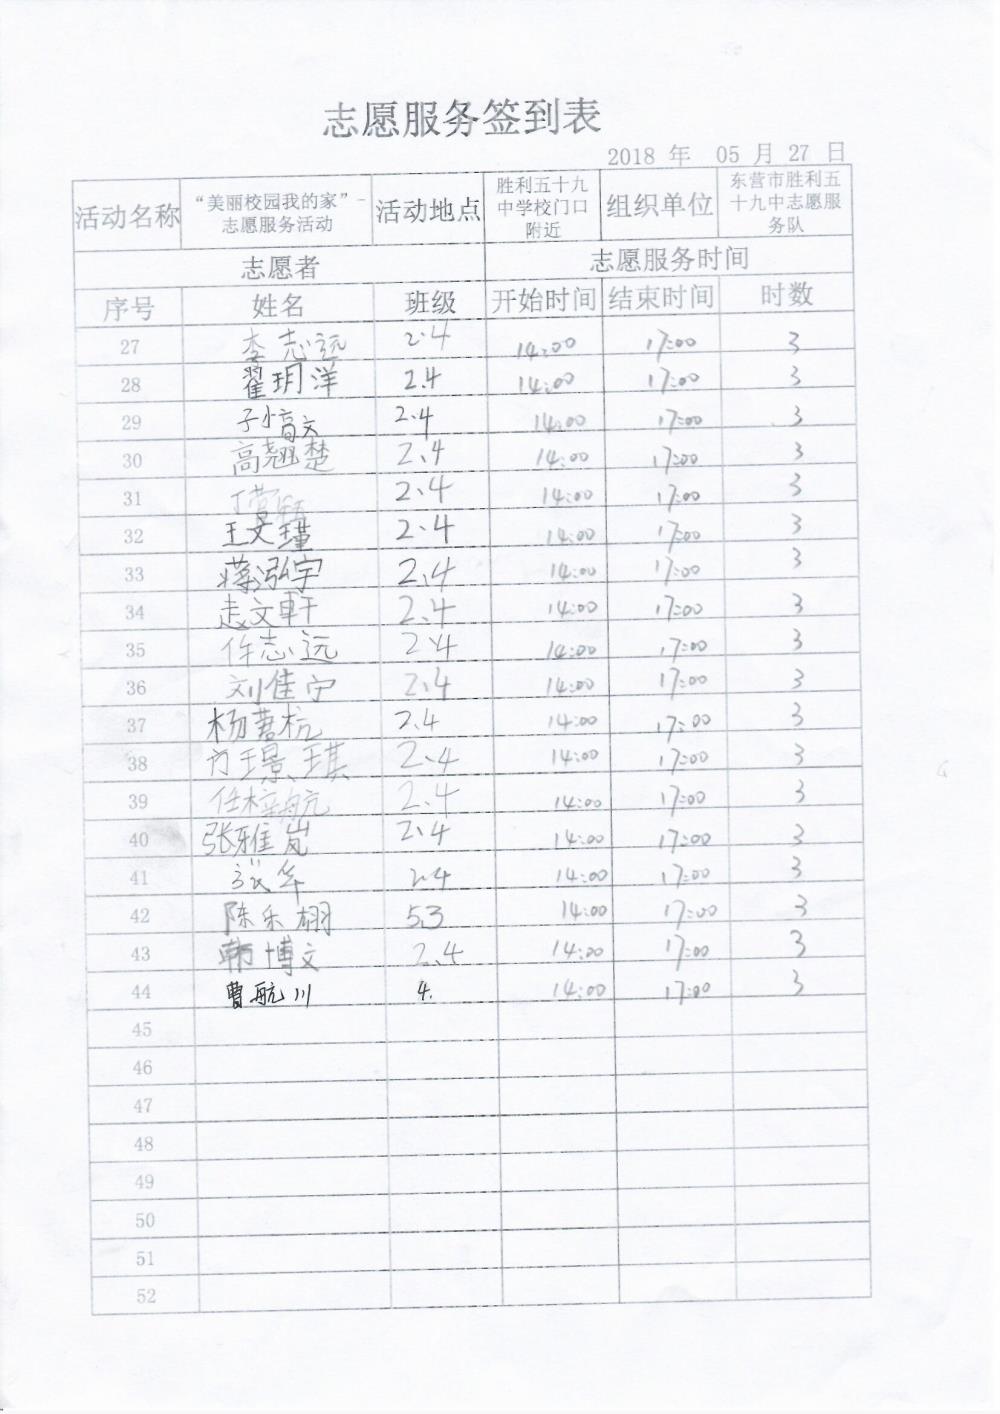 志愿服务签到表
2018 年 05 月 27 日
活动名称 “美丽校园我的家”-志愿服务活动 活动地点 胜利五十九中学校门口附近 组织单位 东营市胜利五十九中志愿服务队
志愿者 志愿服务时间
序号 姓名 班级 开始时间 结束时间 时数
27 李志远 2.4 14:00 17:00 3
28 翟玥洋 2.4 14:00 17:00 3
29 2.4 14:00 17:00 3
30 高翘楚 2.4 14:00 17:00 3
31 2.4 14:00 17:00 3
32 王文瑾 2.4 14:00 17:00 3
33 蒋泓宇 2.4 14:00 17:00 3
34 赵文轩 2.4 14:00 17:00 3
35 志远 2.4 14:00 17:00 3
36 刘佳宁 2.4 14:00 17:00 3
37 杨 杭 2.4 14:00 17:00 3
38 方璟琪 2.4 14:00 17:00 3
39 任梓航 2.4 14:00 17:00 3
40 张雅岚 2.4 14:00 17:00 3
41 华 2.4 14:00 17:00 3
42 陈乐栩 5.3 14:00 17:00 3
43 韩博文 2.4 14:00 17:00 3
44 曹航川 4. 14:00 17:00 3
45
46
47
48
49
50
51
52